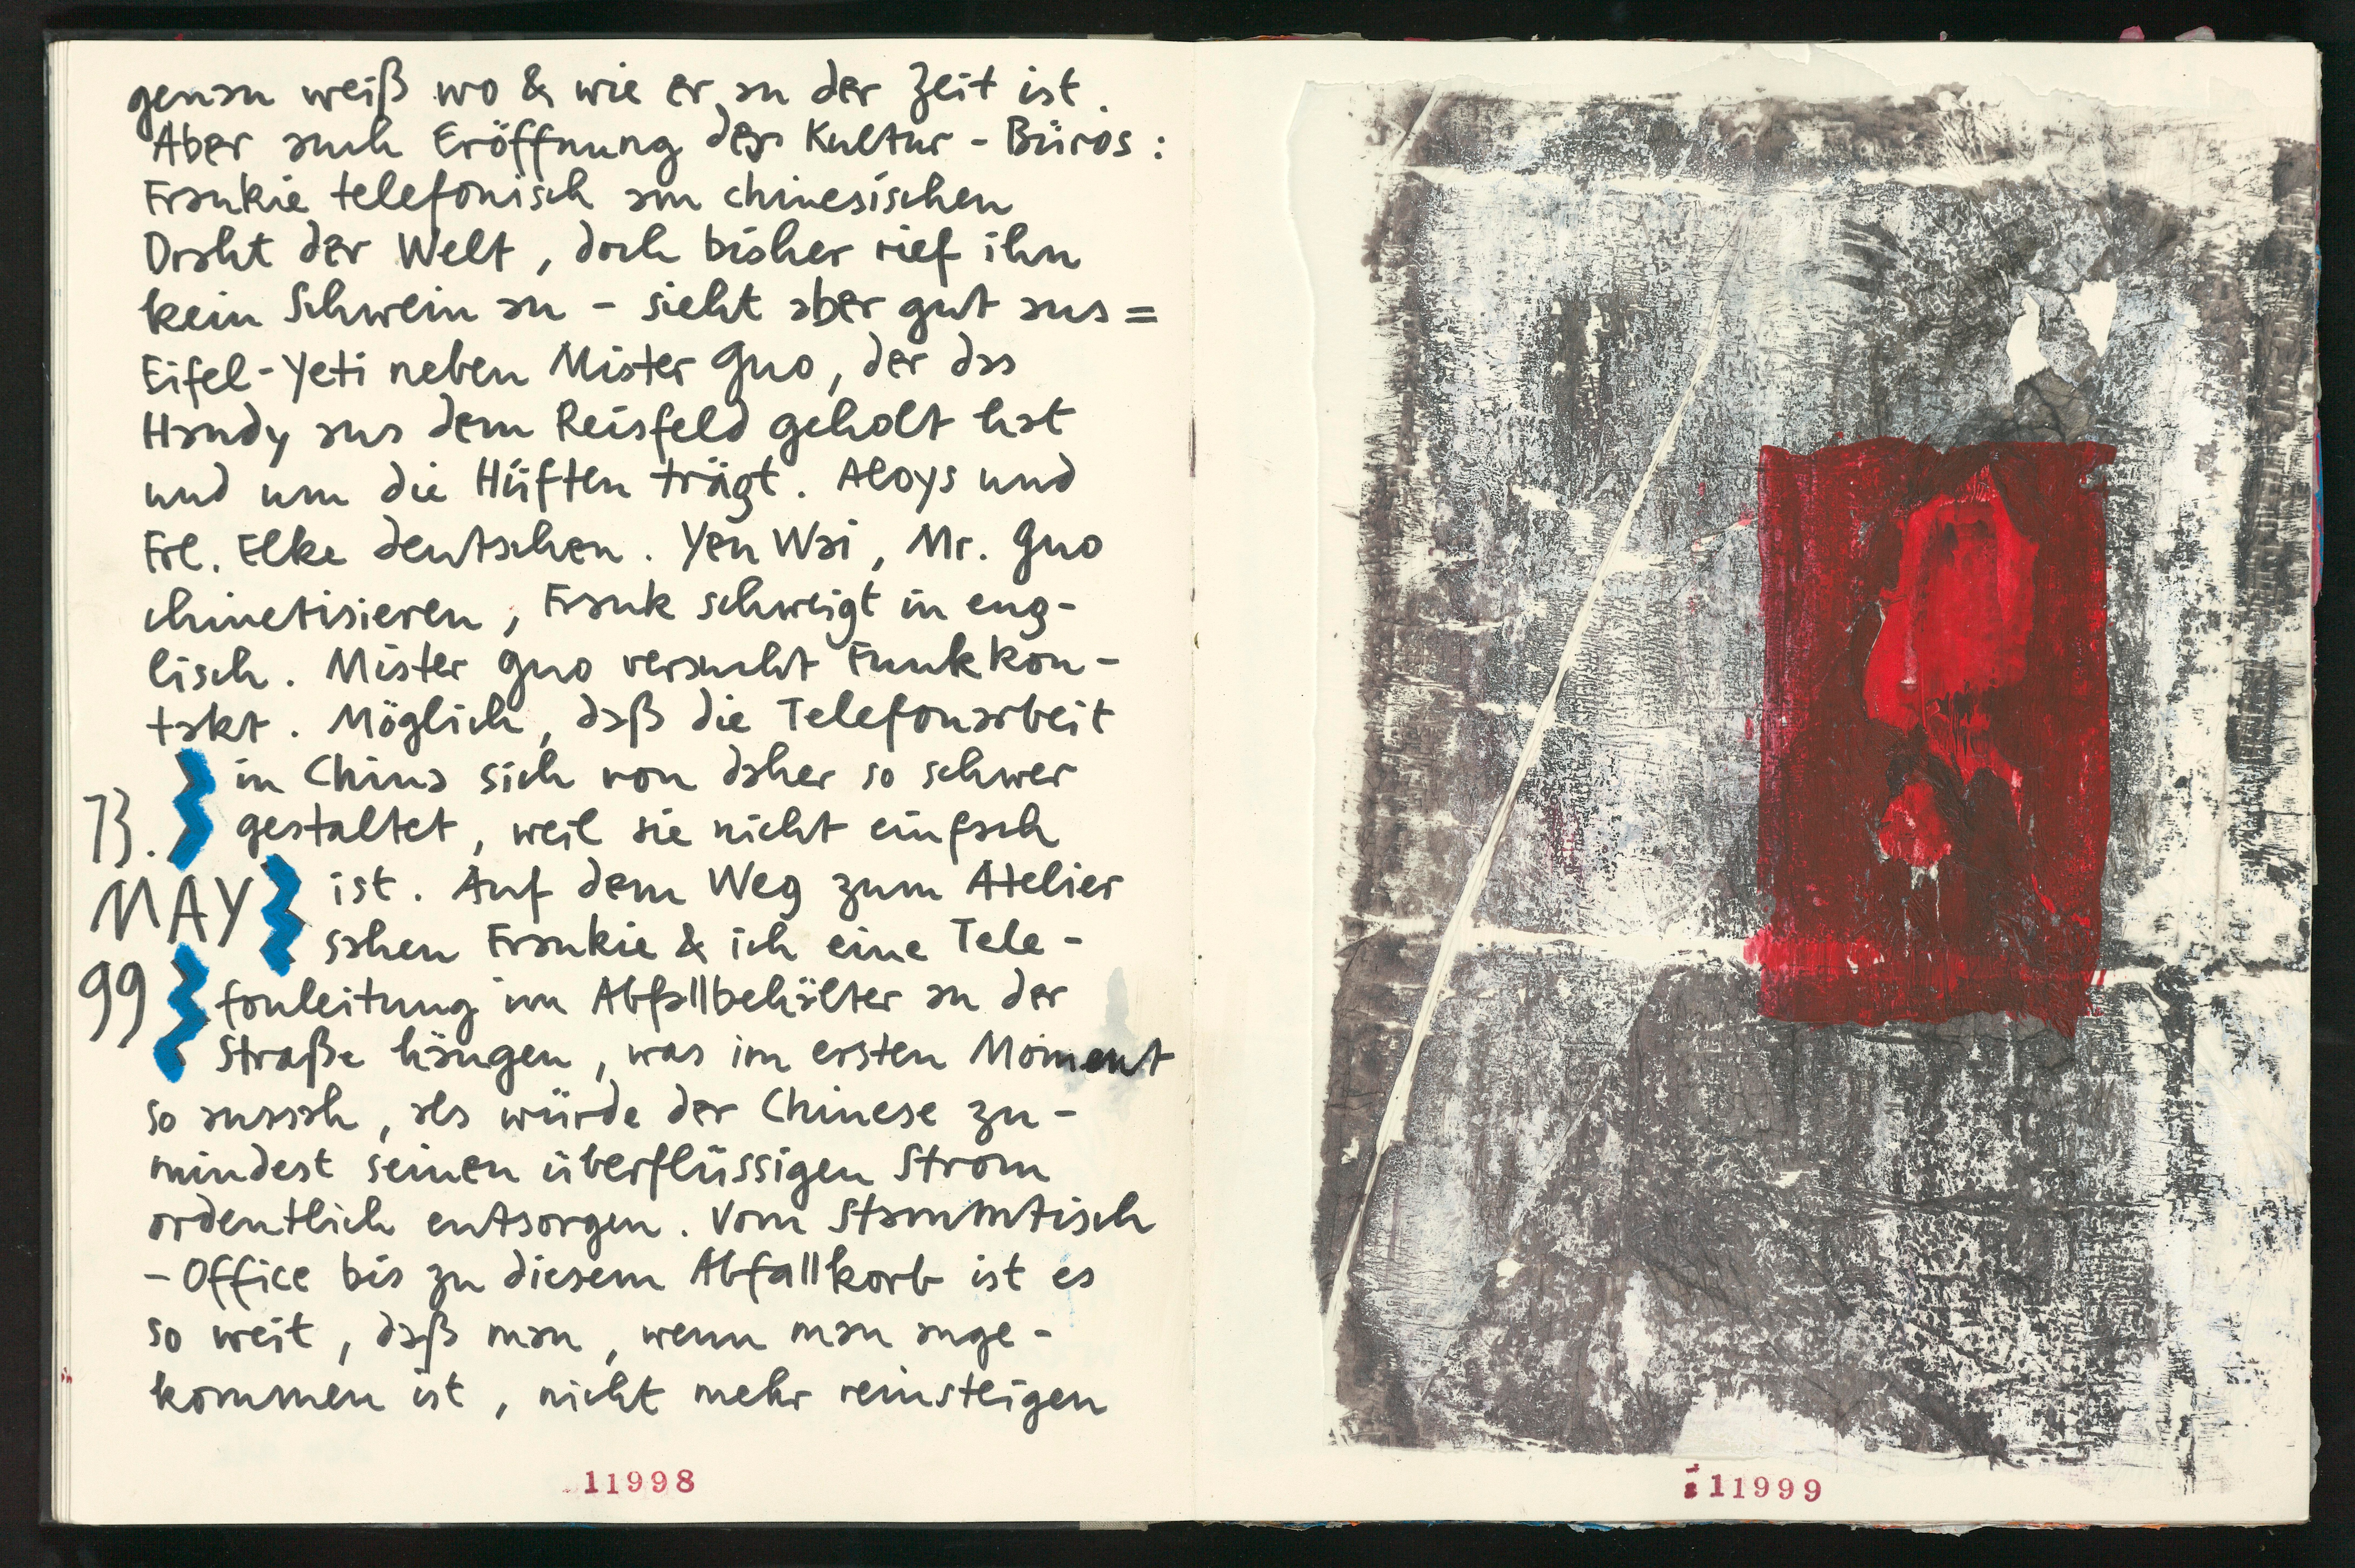 genau weiß wo & wie er an der Zeit ist.
Aber auch Eröffnung des Kultur-Büros:
Frankie telefonisch am chinesischen
Draht der Welt, doch bisher rief ihn
kein Schwein an – sieht aber gut aus =
Eifel-Yeti neben Mister Guo, der das
Handy aus dem Reisfeld geholt hat
und um die Hüften trägt. Aloys und
Frl. Elke deutschen. Yen Wai, Mr. Guo
chinetisieren, Frank schweigt in eng-
lisch. Mister Guo versucht Funkkon-
takt. Möglich, daß die Telefonarbeit
in China sich von daher so schwer
13. gestaltet, weil sie nicht einfach
MAY ist. Auf dem Weg zum Atelier
sahen Frankie & ich eine Tele-
99 fonleitung im Abfallbehälter an der
Straße hängen, was im ersten Moment
so aussah, als würde der Chinese zu-
mindest seinen überflüssigen Strom
ordentlich entsorgen. Vom Stammtisch
-Office bis zu diesem Abfallkorb ist es
so weit, daß man, wenn man ange-
kommen ist, nicht mehr reinsteigen
11998
11999